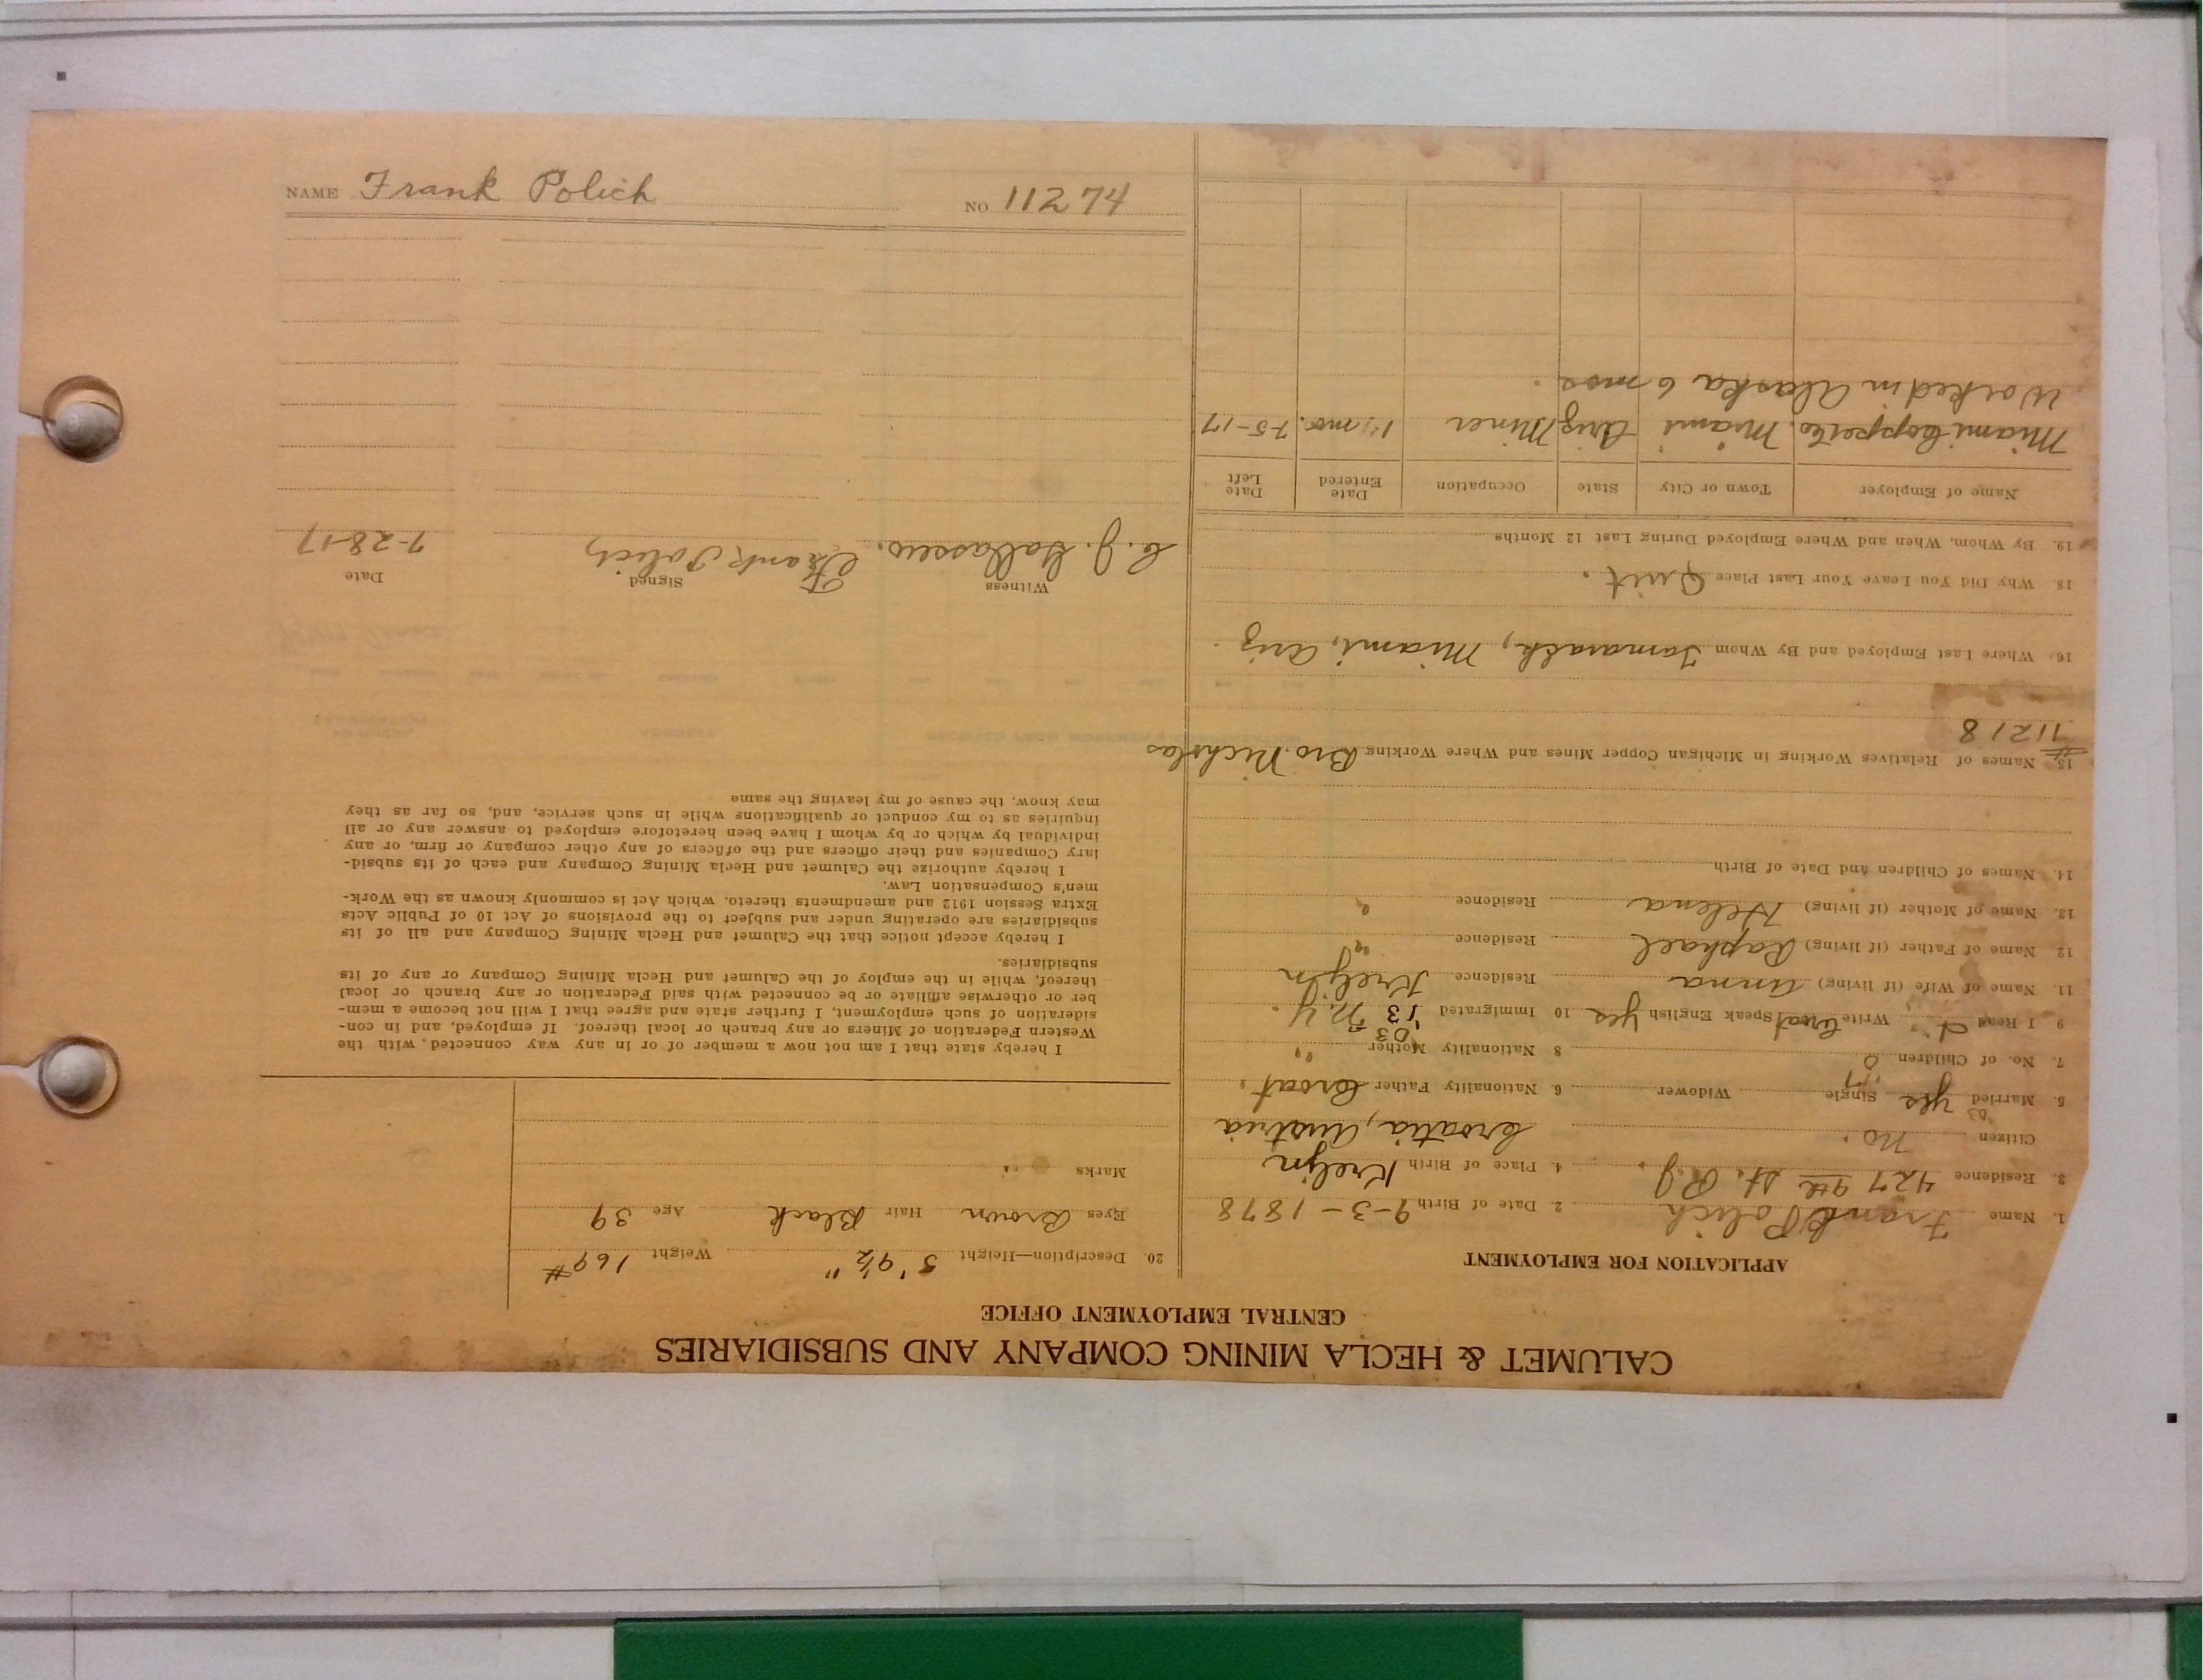 CALUMET & HECLA MINING COMPANY AND SUBSIDIARIES
CENTRAL EMPLOYMENT OFFICE
APPLICATION FOR EMPLOYMENT
1. Name Frank Polich 2. Date of Birth 9-3-1878
3. Residence 427 9th St. R.J. 4. Place of Birth Kreljn
Citizen no. Croatia, Austria
03
5. Married yes Single Widower 6. Nationality Father Croat.
7. No. of Children 0 8 Nationality Mother "
9 I Read Write Croat Speak English yes 10 Immigrated '03 '13 N.Y.
11. Name of Wife (if living) Anna Residence Kreljn
12 Name of Father (if living) Raphael Residence "
13. Name of Mother (if living) Helena Residence "
14. Names of Children and Date of Birth
15 Names of Relatives Working in Michigan Copper Mines and Where Working Bro. Nicholas
# 11218
16. Where Last Employed and By Whom Tamarack, Miami, Ariz.
18. Why Did You Leave Your Last Place Quit.
19. By Whom, When and Where Employed During Last 12 Months
Name of Employer Town or City State Occupation Date Entered Date Left
Miami Copper Co. Miami Ariz Miner mos. 7-5-17
Worked in Alaska 6 mos.
20. Description—Height 5' 9½" Weight 169#
Eyes Brown Hair Black Age 39
Marks
I hereby state that I am not now a member of or in any way connected with the
Western Federation of Miners or any branch or local thereof. If employed, and in con-
sideration of such employment, I further state and agree that I will not become a mem-
ber or otherwise affiliate or be connected with said Federation or any branch or local
thereof, while in the employ of the Calumet and Hecla Mining Company or any of its
subsidiaries.
I hereby accept notice that the Calumet and Hecla Mining Company and all of its
subsidiaries are operating under and subject to the provisions of Act 10 of Public Acts
Extra Session 1912 and amendments thereto. which Act is commonly known as the Work-
men's Compensation Law.
I hereby authorize the Calumet and Hecla Mining Company and each of its subsid-
iary Companies and their officers and the officers of any other company or firm, or any
individual by which or by whom I have been heretofore employed to answer any or all
inquiries as to my conduct or qualifications while in such service, and, so far as they
may know, the cause of my leaving the same
Witness Signed Date
C. J. Frank Polich 7-28-17
NAME Frank Polich NO 11274